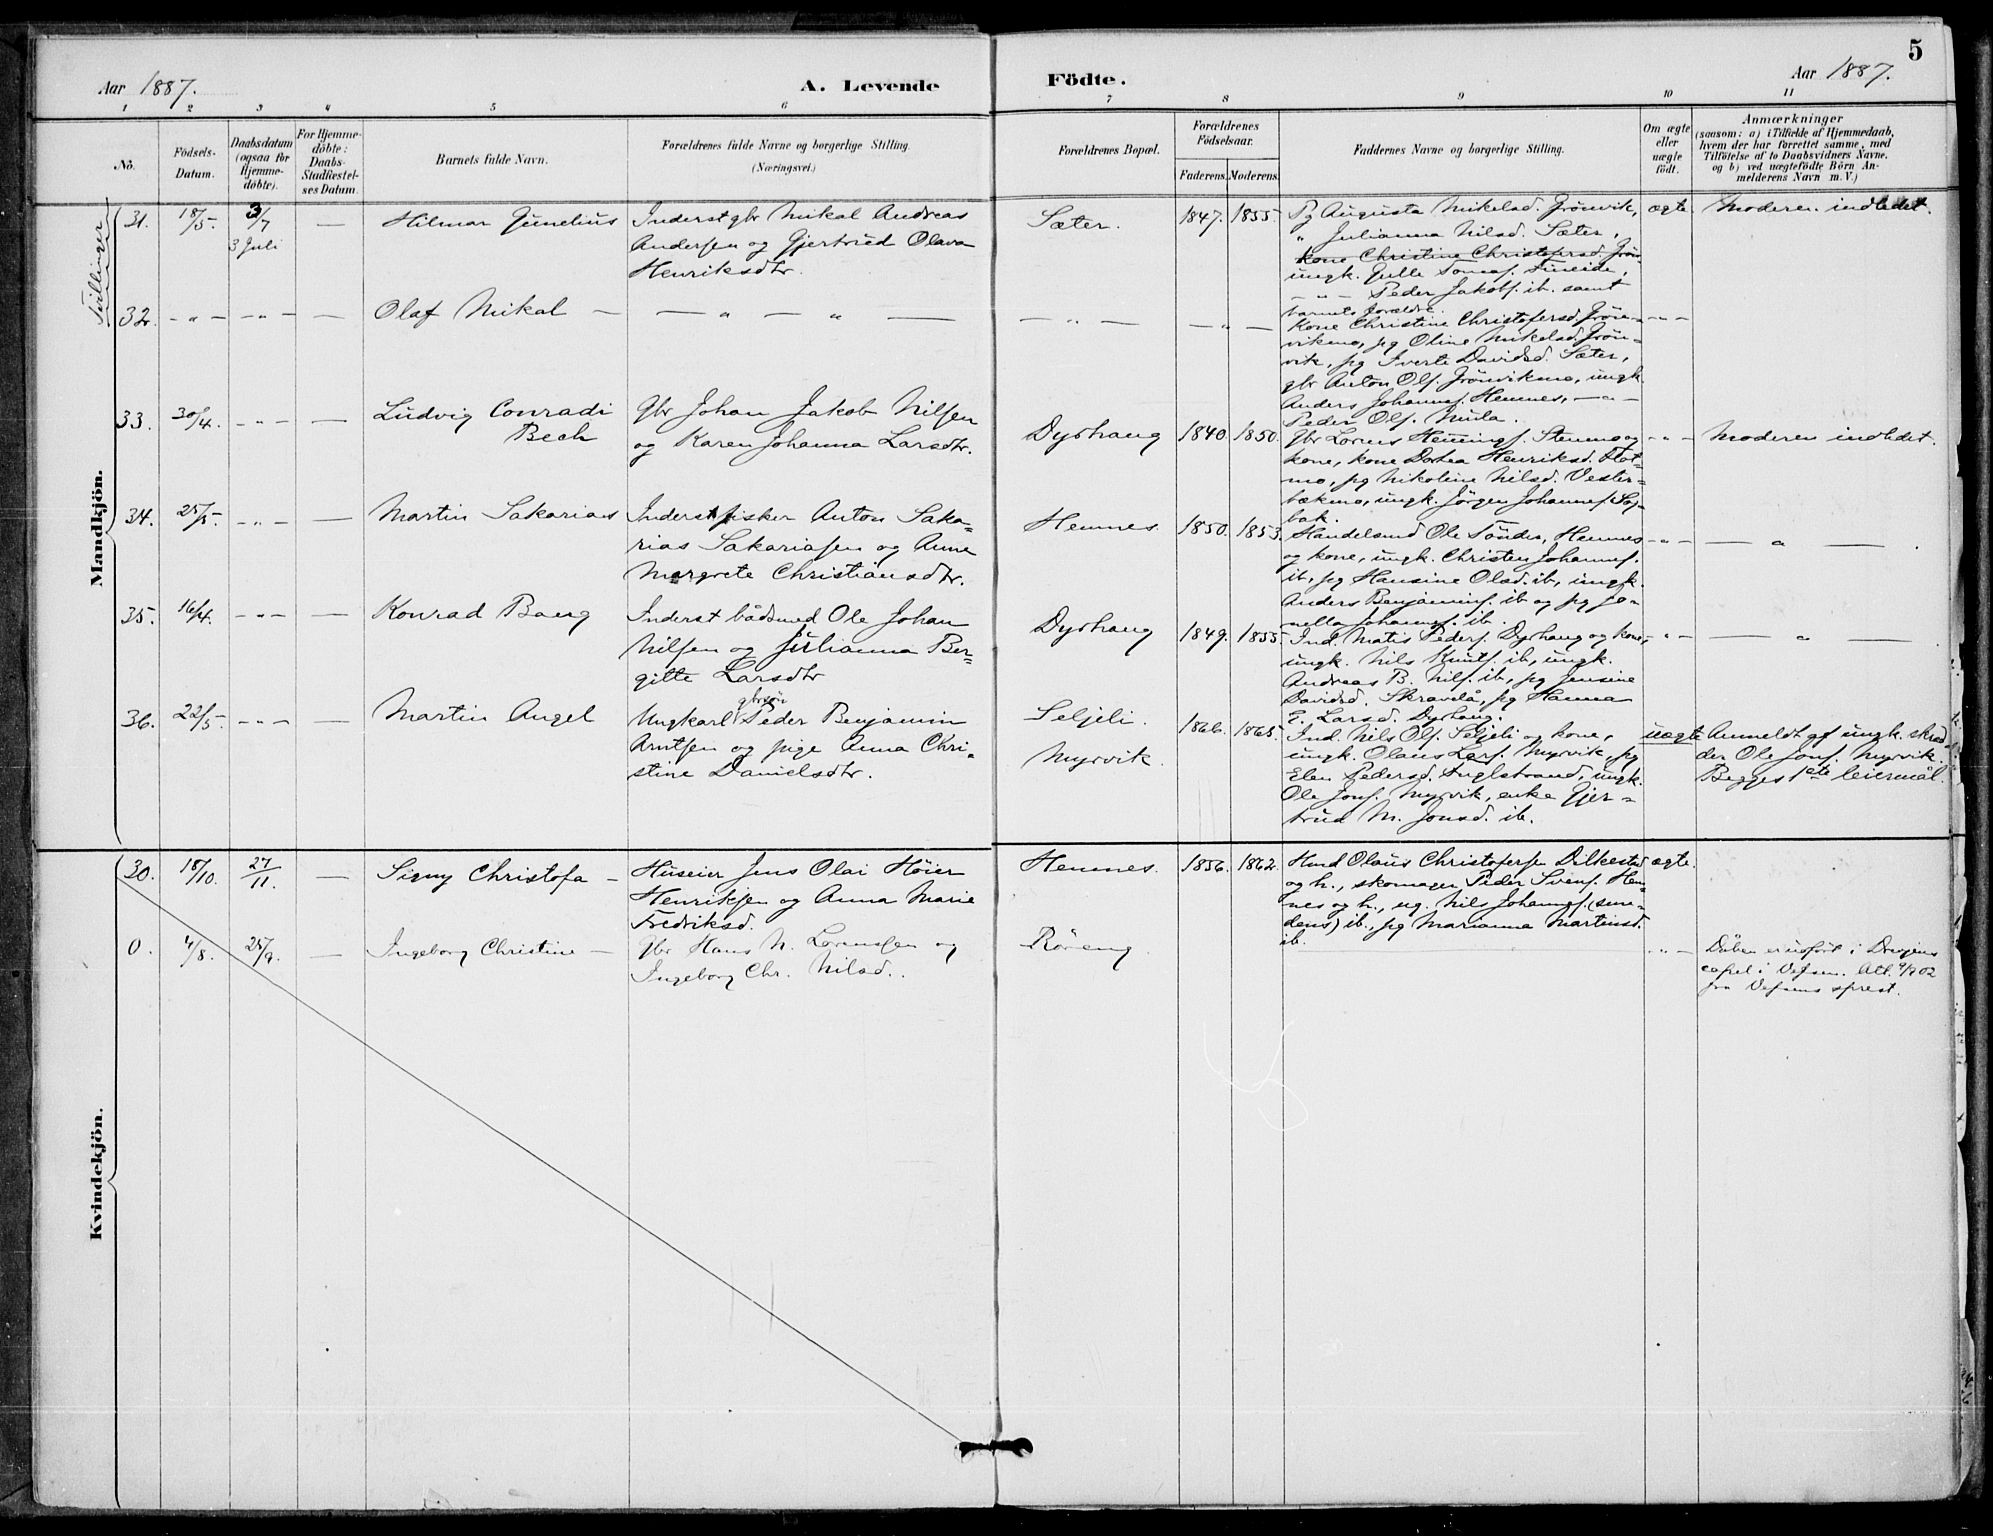 5
Aar 1887.
A. Levende
Födte.
Aar 1887.
1 2 3 4 5 6 7 8 9 10 11
No.
Födsels-
Datum.
Daabsdatum
(ogsaa for
Hjemme-
döbte).
For Hjemme-
döbte:
Daabs-
Stadfæstel-
ses Datum.
Barnets fulde Navn.
Forældrenes fulde Navne og borgerlige Stilling.
(Næringsvei.)
Forældrenes Bopæl.
Forældrenes
Födselsaar.
Faderens. Moderens.
Faddernes Navne og borgerlige Stilling.
Om ægte
eller
uægte
födt.
Anmærkninger
(saasom: a) i Tilfælde af Hjemmedaab,
hvem der har forrettet samme, med
Tilföielse af to Daabsvidners Navne,
og b) ved uægtefödte Börn An-
melderens Navn m. V.)
Mandkjön.
Tvillinger
31. 18/5. 3/7
3 Juli
—
Hilmar Gunelius
Inderst gbr Mikal Andreas
Andersen og Gjertrud Olava
Henriksdtr.
Sæter.
1847. 1855.
Pg Augusta Mikelsd. Grönvik,
" Julianna Nilsd. Sæter,
Kone Christine Christofersd. Grön
ungk. Gulle Tomasf. Fineide,
— " — Peder Jakobf. ib. samt
barnets forældre.
ægte.
Moderen indledet.
32. — " — — " — —
Olaf Mikal —
— " — " —
— " —
— " —
Kone Christine Christofersd. Grön-
vikmo, pg Oline Mikelsd. Grön-
vik, pg Iverte Davidsd. Sæter,
gbr Anton Olf. Grönvikmo, ungk.
Anders Johannesf. Hemnes, — " —
Peder Olf. Mula.
— " —
33. 30/4. — " — —
Ludvig Conradi
Bech
Gbr Johan Jakob Nilsen
og Karen Johanna Larsdtr.
Dyrhaug
1840. 1850.
Gbr Lorens Henningf. Stenmo og
kone, kone Dortea Henriksd. Flot-
mo, pg Nikoline Nilsd. Vester-
bækmo, ungk. Jörgen Johannesf. Sör-
bak.
— " —
Moderen indledet.
34. 25/5. — " — —
Martin Sakarias
Inderst fisker Anton Saka-
rias Sakariasen og Anne
Margrete Christiansdtr.
Hemnes.
1850. 1853.
Handelsmd Ole Tönder, Hemnes
og kone, ungk. Christen Johannesf.
ib, pg Hansine Olsd. ib, ungk.
Anders Benjaminf. ib og pg Jo-
nella Johannesf. ib.
— " —
— " —
35. 16/4. — " — —
Konrad Baeg
Inderst bådsmed Ole Johan
Nilsen og Julianna Ber-
gitte Larsdtr
Dyrhaug
1849. 1855.
Ind. Matis Pedersf. Dyrhaug og kone,
ungk. Nils Knutf. ib, ungk.
Andreas B. Nilsf. ib, pg Jensine
Davidsd. Skravlå, pg Hanna
E. Larsd. Dyrhaug.
— " —
— " —
36. 22/5. — " — —
Martin Angel
gbrsön
Ungkarl Peder Benjamin
Arntsen og pige Anna Chri-
stine Danielsdtr.
Seljeli.
Myrvik.
1866. 1865.
Ind. Nils Olf. Seljeli og kone,
ungk. Olaus Larsf. Myrvik, pg
Elen Pedersd. Inglstrand, ungk.
Ole Jonsf. Myrvik, enke Gjer-
trud M. Jonsd. ib.
uægte
Anmeldt af ungk. skræd
der Ole Jonsf. Myrvik.
Begges 1ste leiermål.
Kvindekjön.
30. 18/10. 27/11. —
Signy Christofa —
Huseier Jens Olai Höier
Henriksen og Anna Marie
Fredriksd.
Hemnes.
1856. 1862.
Hmd Olaus Christofersen Dilkestad
og h., skomager Peder Svensf. Hem-
nes og h., ug. Nils Johannesf. (sme-
dens) ib., pg Marianna Martinsd.
ib.
ægte.
0. 4/8. 25/9. —
Ingeborg Christine —
Gbr Hans N. Lorenssen og
Ingeborg Chr. Nilsd.
Röreng
— " —
Dåben er udfört i Drevjens
capel i Vefsen. Att. 9/7 02
fra Vefsens sprest.